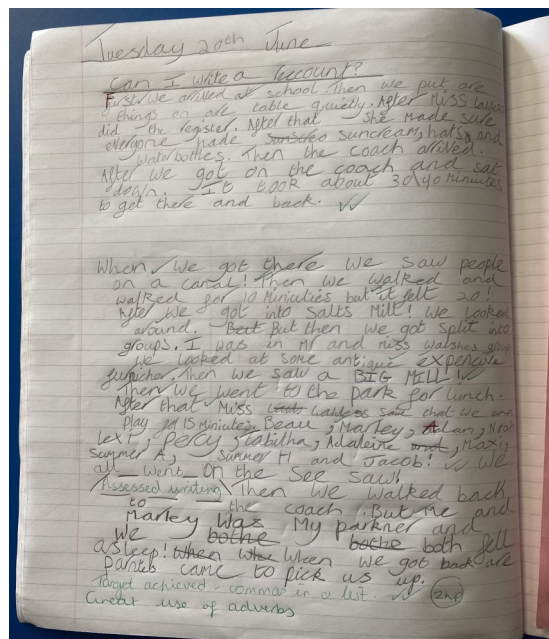 Tuesday 20th June
Can I write a reccount?
First, We arrived at school. Then we put are
things on are table quietly. After Miss
did the register. After that she made sure
everyone hade suncream, hats, and
waterbottles. Then the coach arrived.
After we got on the coach and sat
down. It took about 30\40 Miniutes
to get there and back.
When We got there we saw people
on a canal! Then we walked and
walked for 10 Miniuties but it felt 20!
After we got into Salts Mill! We looked
around. But But then we got split into
groups. I was in Mr and Miss walshes group
we looked at some antique expencive
furnicher. Then we saw a BIG MILL!
Then we went to the park for lunch.
After that Miss said that we can
Play for 15 Miniutes. Beau, Marley, Alani, Noah
Lexi, Percy, Tabitha, Adaleine and, Maxi,
summer A, summer H and Jacob! We
all went on the See saw!
Assessed writing Then we walked back
to the coach. But Me and
Marley Was My partner and
We bothe bothe both fell
asleep! When When When we got back are
Parents came to pick us up.
Target achieved - commas in a list.
Great use of adverbs